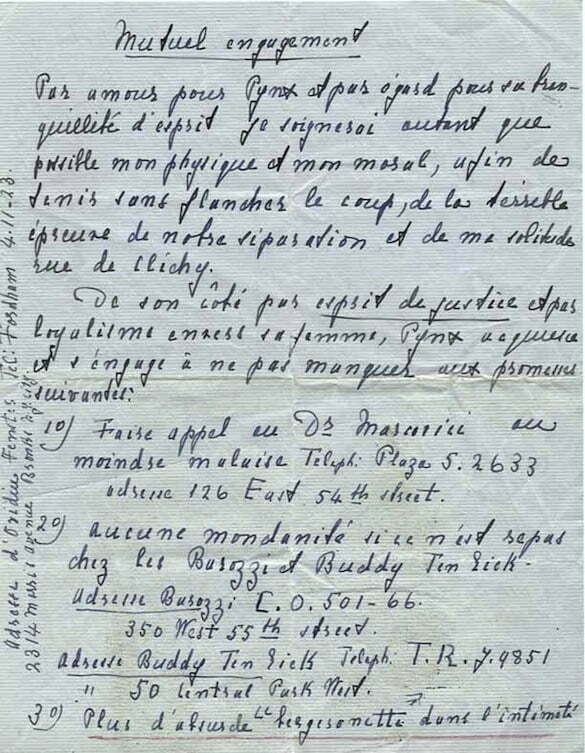 Mutuel engagement
Par amour pour Pynx et par égard pour sa tran-
quillité d'esprit je soignerai autant que
possible mon physique et mon moral, afin de
tenir sans flancher le coup, de la terrible
épreuve de notre séparation et de ma solitude
rue de Clichy.
De son côté par esprit de justice et par
loyalisme envers sa femme, Pynx acquiesce
et s'engage à ne pas manquer aux promesses
suivantes:
1o) Faire appel au Dr Mascorici au
moindre malaise Teleph: Plaza 5.2633
adresse 126 East 54th street.
2o) aucune mondanité si ce n'est repas
chez les Barozzi et Buddy Ten Eick.
Adresse Barozzi C.O. 501-66.
350 West 55th street.
adresse Buddy Ten Eick Teleph: T.R. 7.9851
" 50 Central Park West.
3o) Plus d'absurde "bergeronette" dans l'intimité
Adresse d'Oridue Tél: Fordham 4.11-28.
2314 avenue Bronx